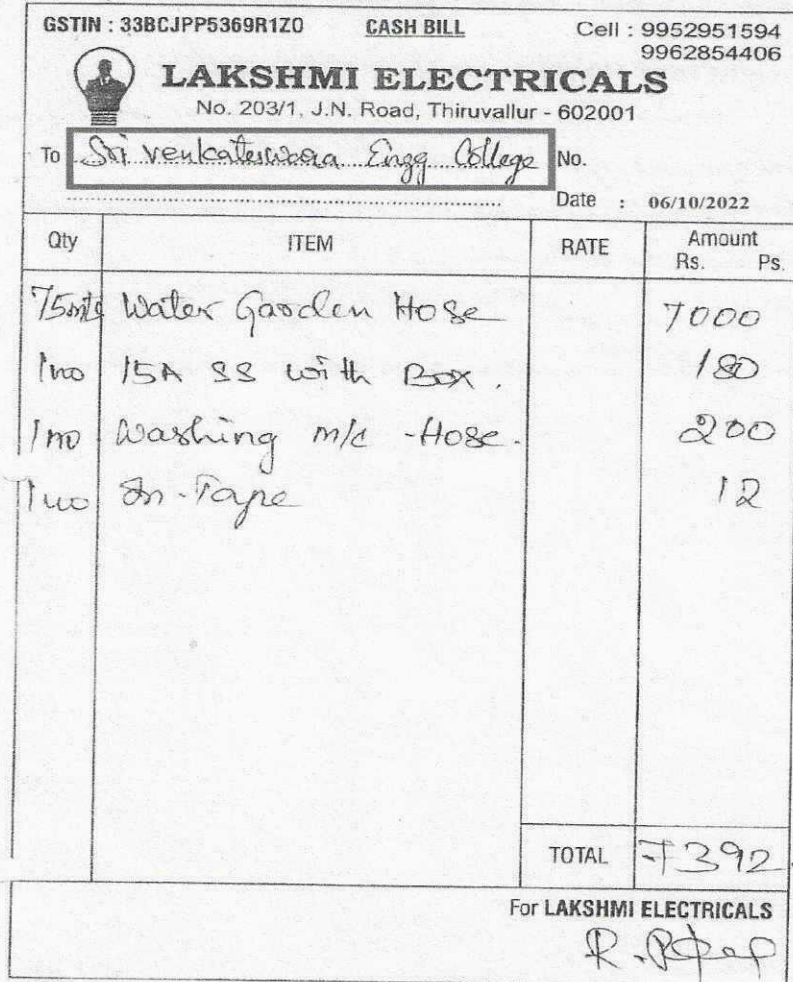 GSTIN : 33BCJPP5369R1Z0 CASH BILL Cell : 9952951594
9962854406
LAKSHMI ELECTRICALS
No. 203/1, J.N. Road, Thiruvallur - 602001
To Sri Venkateswara Engg College No.
Date : 06/10/2022
Qty ITEM RATE Amount
Rs. Ps.
75mts Water Garden Hose 7000
1no 15A SS with Box. 180
1no Washing m/c - Hose. 200
1no In-Tape 12
TOTAL 7392
For LAKSHMI ELECTRICALS